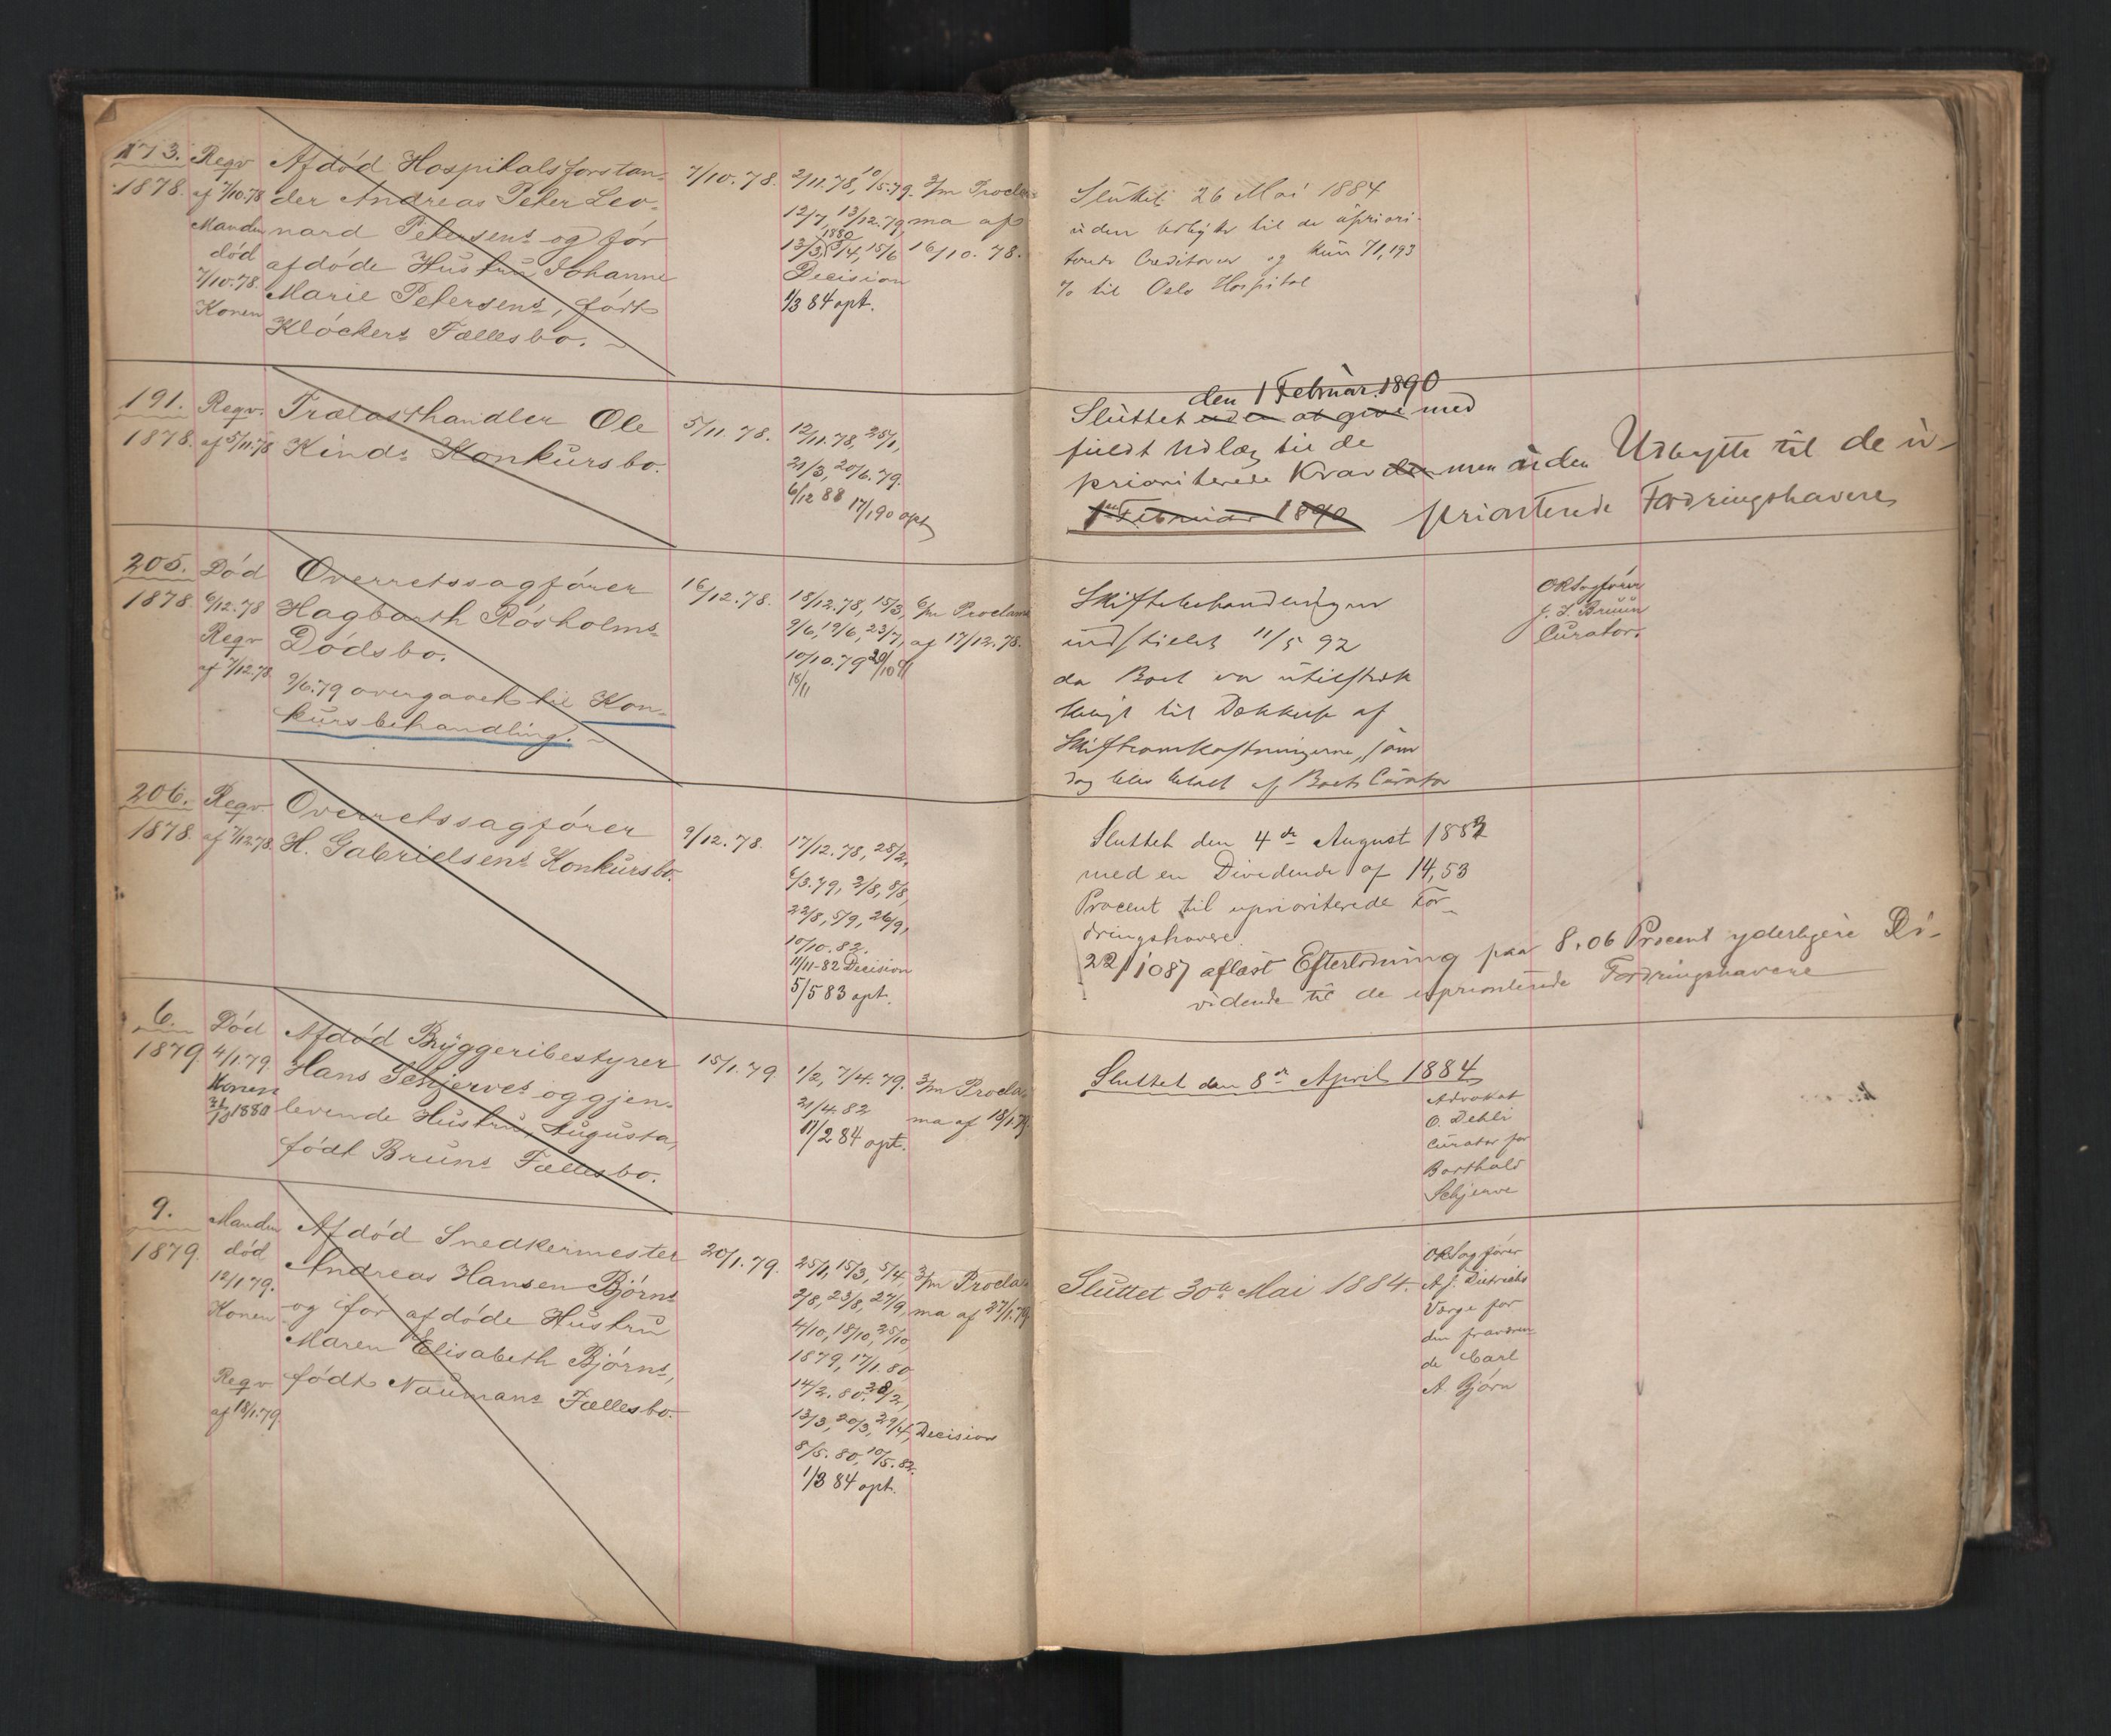 173.
1878.
Reqv
af 7/10.78
Manden
død
7/10.78.
Konen
Afdød Hospitalsforstan-
der Andreas Peter Leo-
nard Petersens og før
afdøde Hustru Johanne
Marie Petersens, født
Klöckers Fællesbo.
7/10.78.
2/11.78, 10/5.79.
12/7, 13/12.79,
1880
13/3, 3/4, 15/6
Decision
1/3 84 opt.
3/m Procla-
ma af
16/10.78.
Sluttet 26 Mai 1884
uden Udbytte til de upriori-
terede Creditorer og kun 71,193
% til Oslo Hospital
191.
1878.
Reqv.
af 5/11.78
Trælasthandler Ole
Kinds Konkursbo.
5/11.78.
12/11.78, 25/1,
21/3, 20/6.79.
6/12 88 17/1 90 opt
den 1 Februar 1890
Sluttet uden at give med
fuldt Udlæg til de
prioriterede Krav den men uden Udbytte til de u-
1ste Februar 1890 prioriterede Fordringshavere
205.
1878.
Død
6/12.78
Reqv
af 7/12.78
Overretssagfører
Hagbarth Røsholms
Dødsbo.
9/6.79 overgaaet til Kon-
kursbehandling.
16/12.78.
18/12.78, 15/3,
9/6, 19/6, 23/7,
10/10.79 20/10 91
16/11
6/m Proclama
af 17/12.78.
Skiftebehandlingen
indstillet 11/5 92
da Boet var utilstræk
keligt til Dækkelse af
Skifteomkostningerne, som
dog blev betalt af Boets Curator
ORSagfører
J. J. Bruun
Curator.
206.
1878.
Reqv.
af 7/12.78.
Overretssagfører
H. Gabrielsens Konkursbo.
9/12.78.
17/12.78, 28/2,
6/3.79, 2/8, 8/8,
22/8, 5/9, 26/9,
10/10.82.
11/11-82 Decision
5/5 83 opt.
Sluttet den 4de August 1883
med en Dividende af 14,53
Procent til uprioriterede For-
dringshavere.
22/1087 aflæst Efterlodning paa 8.06 Procent yderligere Di-
vidende til de uprioriterede Fordringshavere
6.
1879.
Død
4/1.79.
Konen
31/10 1880
Afdød Bryggeribestyrer
Hans Schjerves og gjen-
levende Hustru, Augusta,
født Bruns Fællesbo.
15/1.79
1/2, 7/4.79.
21/4.82
11/2 84 opt.
3/m Procla-
ma af 18/1.79
Sluttet den 8de April 1884
Advokat
O. Dehli
Curator for
Barthold
Schjerve
9.
1879.
Manden
død
12/1.79.
Konen
Reqv
af 18/1.79.
Afdød Snedkermester
Andreas Hansen Bjørns
og før afdøde Hustru
Maren Elisabeth Bjørns,
født Naumans Fællesbo.
20/1.79.
25/1, 15/3, 5/4,
2/8, 23/8, 27/9,
4/10, 18/10, 25/10,
1879, 17/1.80,
14/2.80, 28/2,
13/3, 20/3, 29/4, Decision
8/5.80, 10/5.82.
1/3 84 opt.
3/m Procla-
ma af 27/1.79
Sluttet 30te Mai 1884.
ORSagfører
A. J. Dietrichs
Værge for
den fraværen-
de Carl
A. Bjørn